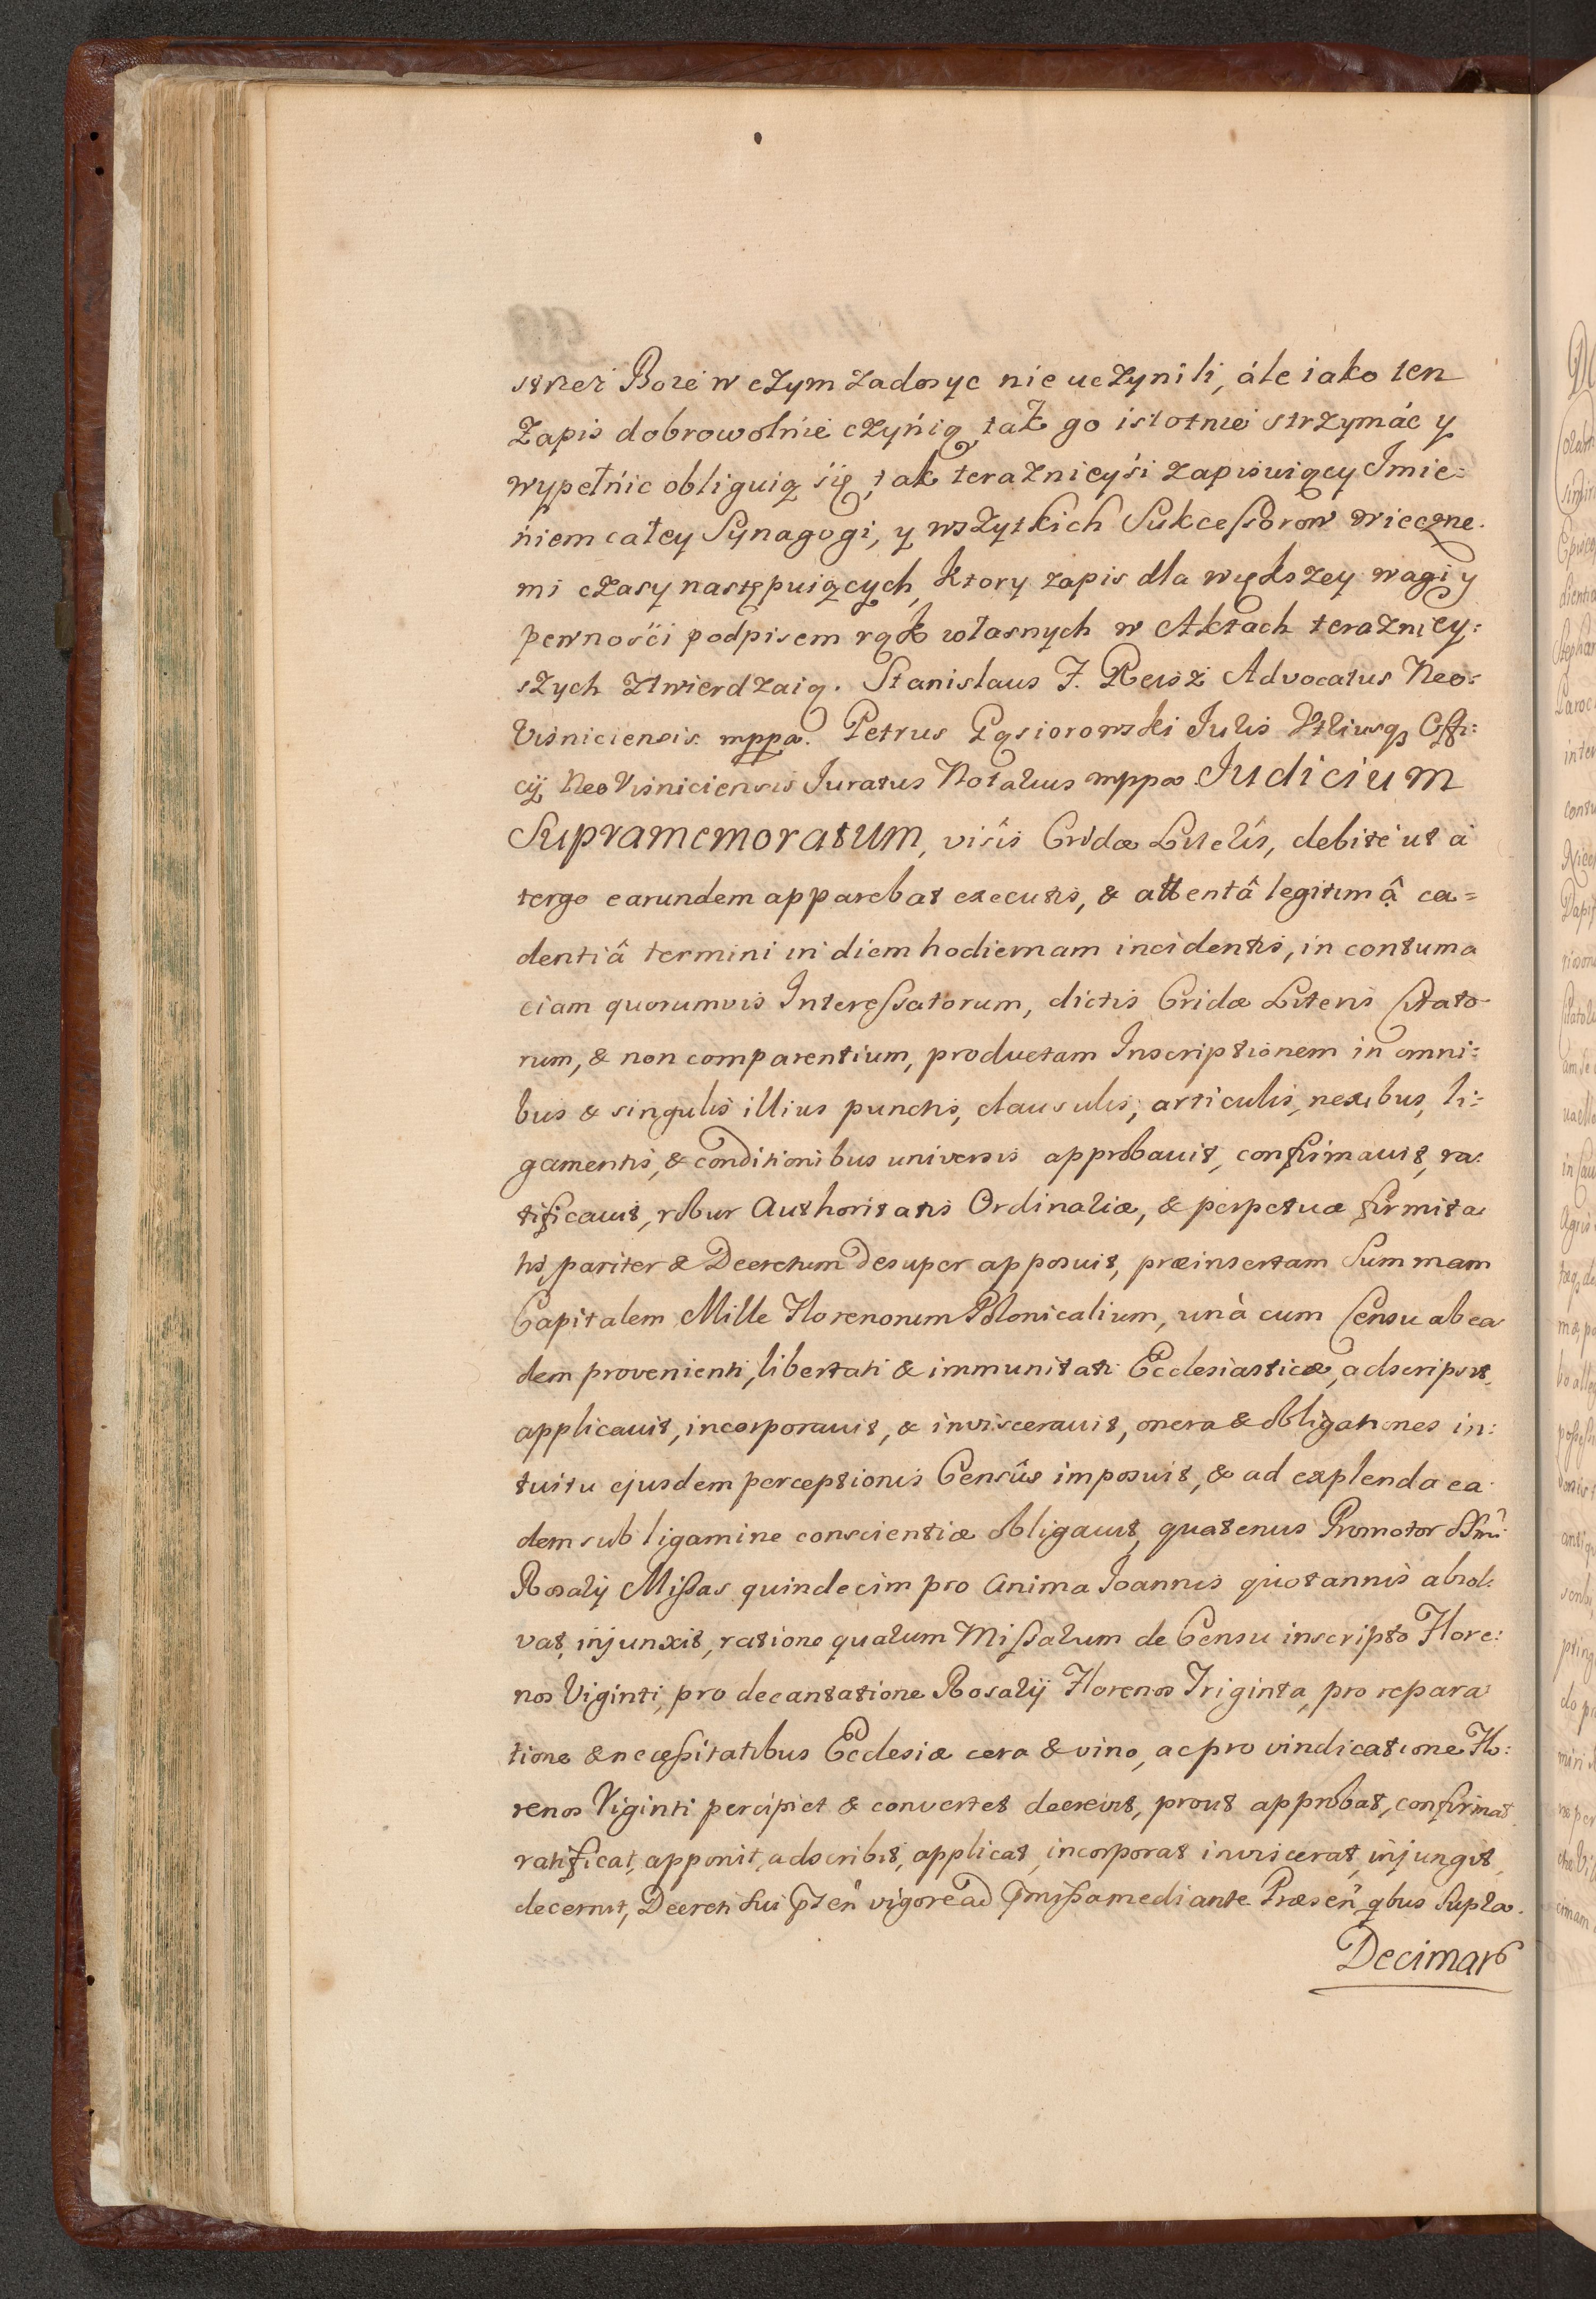 strzeż Boże w czym zadosyc nie uczynili, ále iako ten
Zapis dobrowolnie czynią tak go istotnie strzymác y
wypełnic obliguią się, tak teraznieysi zapisuiący Imie:
niem całey Synagogi, y wszytkich Sukceſsorow wieczne.
mi czasy następuiących, ktory zapis dla większey wagi y
pewności podpisem rąk własnych w Aktach terazniey:
szych ztwierdzaią. Stanislaus F. Reisz Advocatus Neo:
Visniciensis mppa. Petrus Gąsiorowski Iuris Utriusq Offi:
cij NeoVisniciensis Iuratus Notarius mppa Iudicium
Supramemoratum, visis Cridæ Literis, debite ut a
tergo earundem apparebat executis, & attentâ legitimâ ca=
dentiâ termini in diem hodiernam incidentis, in contuma
ciam quorumvis Intereſsatorum, dictis Cridæ Literis Citato
rum, & non comparentium, productam Inscriptionem in omni:
bus & singulis illius punctis, clausulis, articulis, nexibus, li:
gamentis, & conditionibus universis approbavit, confirmavit, ra:
tificavit, robur Authoritatis Ordinariæ, & perpetuæ firmita
tis, pariter & Decretum desuper apposuit, præinsertam Summam
Capitalem Mille Florenorum Polonicalium, unà cum Censu ab ea
dem provenienti, libertati & immunitati Ecclesiasticæ, adscripsit,
applicavit, incorporavit, & invisceravit, onera & obligationes in:
tuitu ejusdem perceptionis Censûs imposuit, & ad explenda ea
dem sub ligamine conscientiæ obligavit, quatenus Promotor SSmi
Rosarij Miſsas quindecim pro Anima Ioannis quotannis absol:
vat, injunxit, ratione quarum Miſsarum de Censu inscripto Flore:
nos Viginti, pro decantatione Rosarij Florenos Triginta, pro repara
tione & neceſsitatibus Ecclesiæ cera & vino, ac pro vindicatione Flo:
renos Viginti percipiet & convertet decrevit, prout approbat, confirmat,
ratificat, apponit, adscribit, applicat, incorporat inviscerat, injungit,
decernit, Decreti sui pſten vigore ad pmiſsa mediante Præsen qbus supra.
Decimar